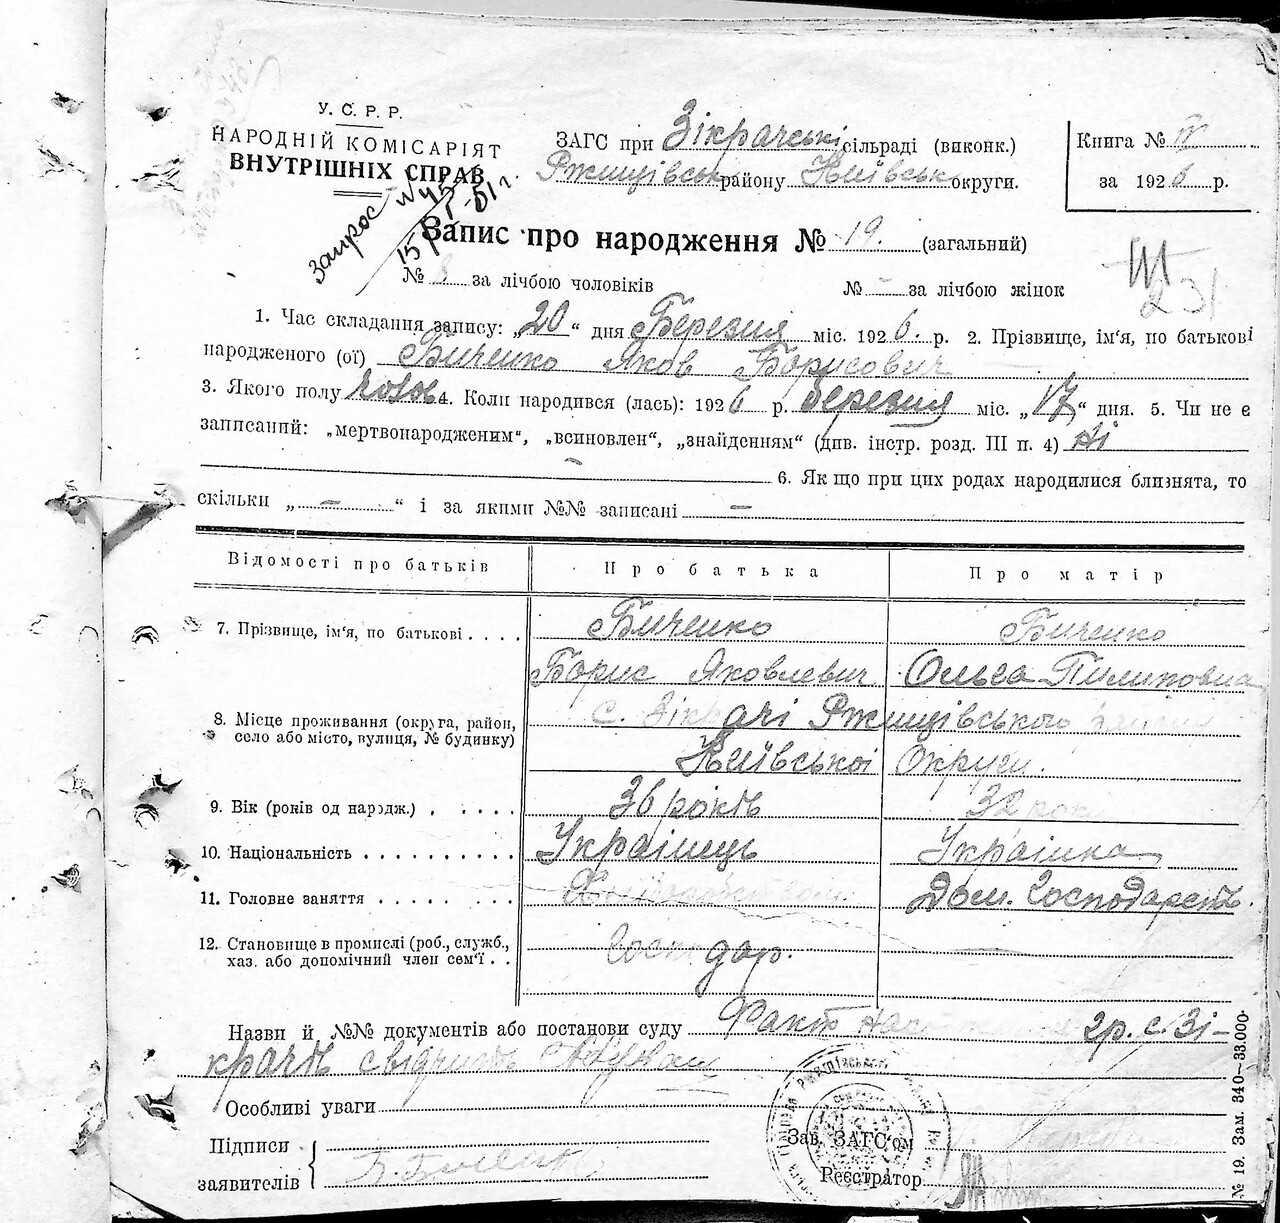 У. С. Р. Р.
НАРОДНІЙ КОМІСАРІЯТ
ВНУТРІШНІХ СПРАВ
запрос №45
15/I-51 г.
ЗАГС при Зікрачські сільраді (виконк.)
Ржищівськ району Київськ округи.
Книга № IV
за 1926 р.
Запис про народження № 19. (загальний)
№ 8 за лічбою чоловіків № - за лічбою жінок
231
1. Час складання запису: „20“ дня Березня міс. 1926. р. 2. Прізвище, ім'я, по батькові
народженого (ої) Биченко Яков Борисович
3. Якого полу 4. Коли народився (лась): 1926 р. Березня міс. „17“ дня. 5. Чи не є
записаний: „мертвонародженим“, „всиновлен“, „знайденням“ (див. інстр. розд. III п. 4) Ні
6. Як що при цих родах народилися близнята, то
скільки „ — “ і за якими №№ записані —
Відомості про батьків Про батька Про матір
7. Прізвище, ім'я, по батькові . . . . Биченко Биченко
Борис Яковлевич Ольга Пилиповна
8. Місце проживання (округа, район, с. Зікрачі Ржищівського района
село або місто, вулиця, № будинку) Київської Округи.
9. Вік (років од нардж.) . . . . 36 років 32 рок
10. Національність . . . . . . . . . . Українець Українка
11. Головне заняття . . . . . . . . Дом. Господарств.
12. Становище в промислі (роб., служб., Господар.
хаз. або допомічний член сем'ї . .
Назви й №№ документів або постанови суду Факт 2р. с. Зі-
крачів свідчить
Особливі уваги
Підписи
заявителів Б. Биченко
Зав. ЗАГС'ом
Реєстратор
№ 19. Зам. 340—33.000.